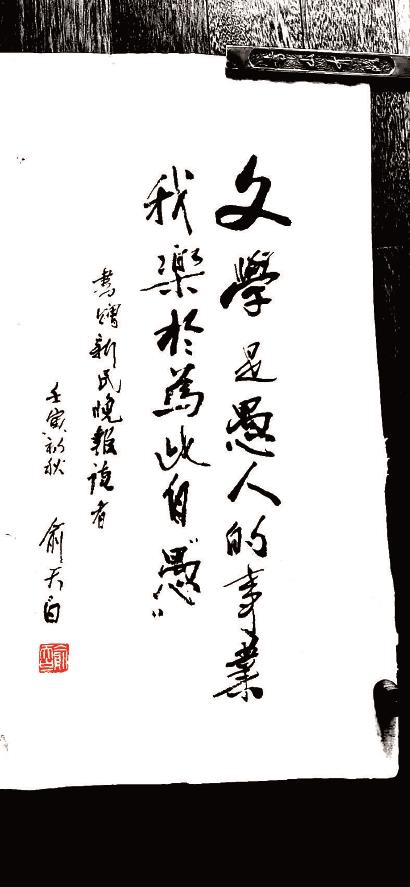 文學是愚人的事業
我樂於爲此自“愚”
書贈新民晚報讀者
壬寅初秋 俞天白